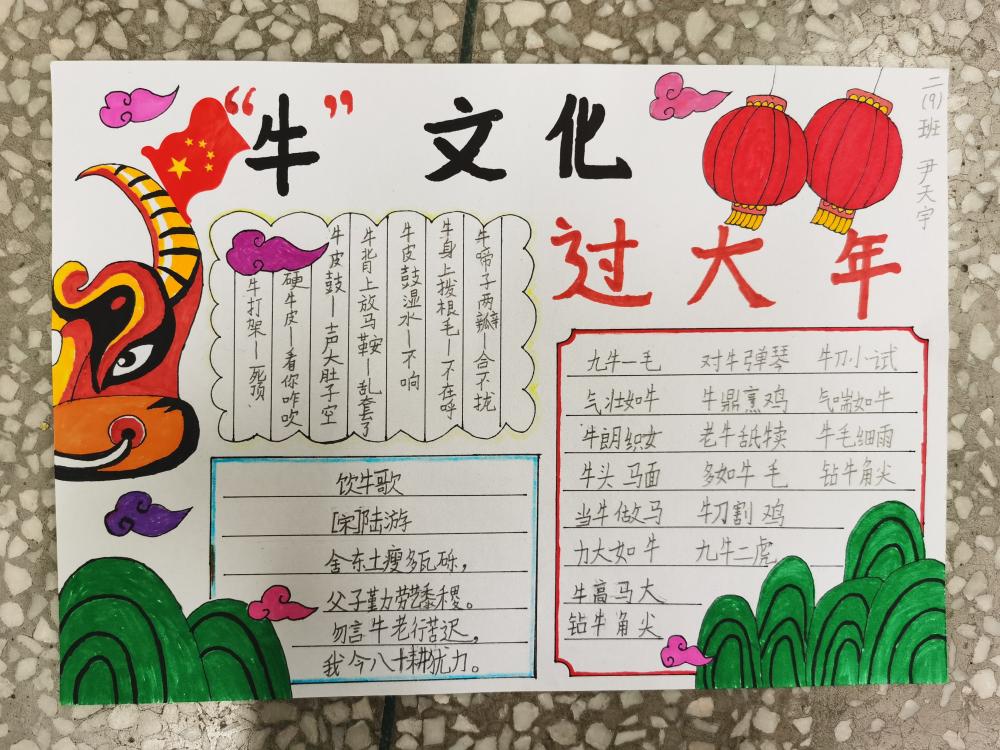 “牛”文化
二(9)班 尹天宇
过大年
牛蹄子两瓣—合不拢
牛身上拨根毛—不在呼
牛皮鼓湿水—不响
牛背上放马鞍—乱套了
牛皮鼓—声大肚子空
硬牛皮—看你咋吹
牛打架—死顶
九牛一毛 对牛弹琴 牛刀小试
气壮如牛 牛鼎烹鸡 气喘如牛
牛朗织女 老牛舐犊 牛毛细雨
牛头马面 多如牛毛 钻牛角尖
当牛做马 牛刀割鸡
力大如牛 九牛二虎
牛高马大
钻牛角尖
饮牛歌
[宋]陆游
舍东土瘦多瓦砾，
父子勤力艺黍稷。
勿言牛老行苦迟，
我今八十耕犹力。